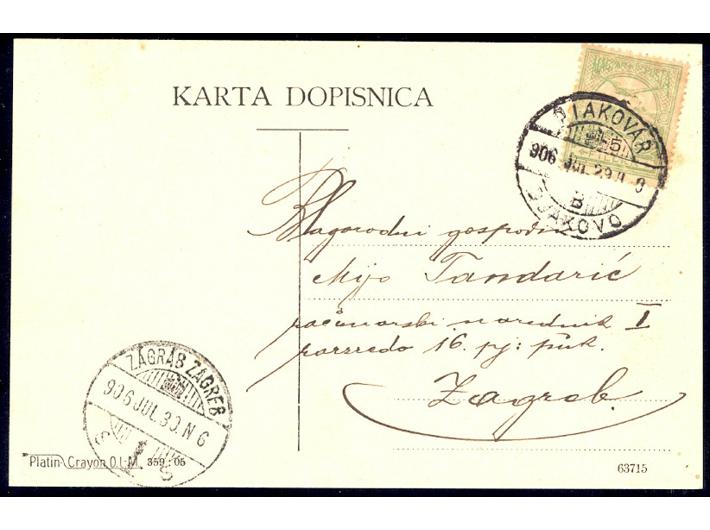 KARTA DOPISNICA
MAGYAR KIR. POSTA
DIAKOVÁR
5
906 JUL. 29. N 6
B
DJAKOVO
Blagorodni gospodin
Mijo Tandarić
računarski narednik I
razreda 16. pj: puk.
Zagreb.
ZÁGRÁB ZAGREB
906 JUL. 30. N 6
Platin Crayon D.L.M. 359 : 05
63715